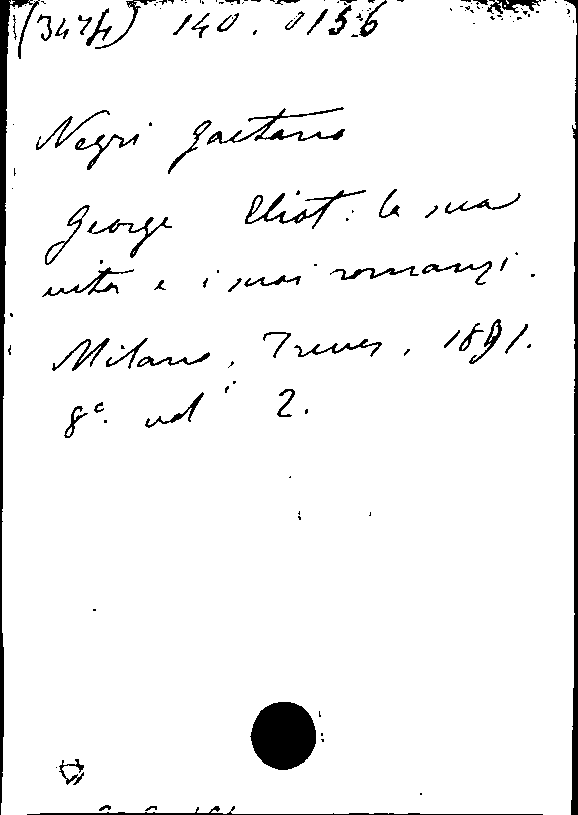 (3474) 140.0156
Negri Gaetano
George Eliot: la sua
vita e i suoi romanzi.
Milano, Treves, 1891.
8º. vol i 2.